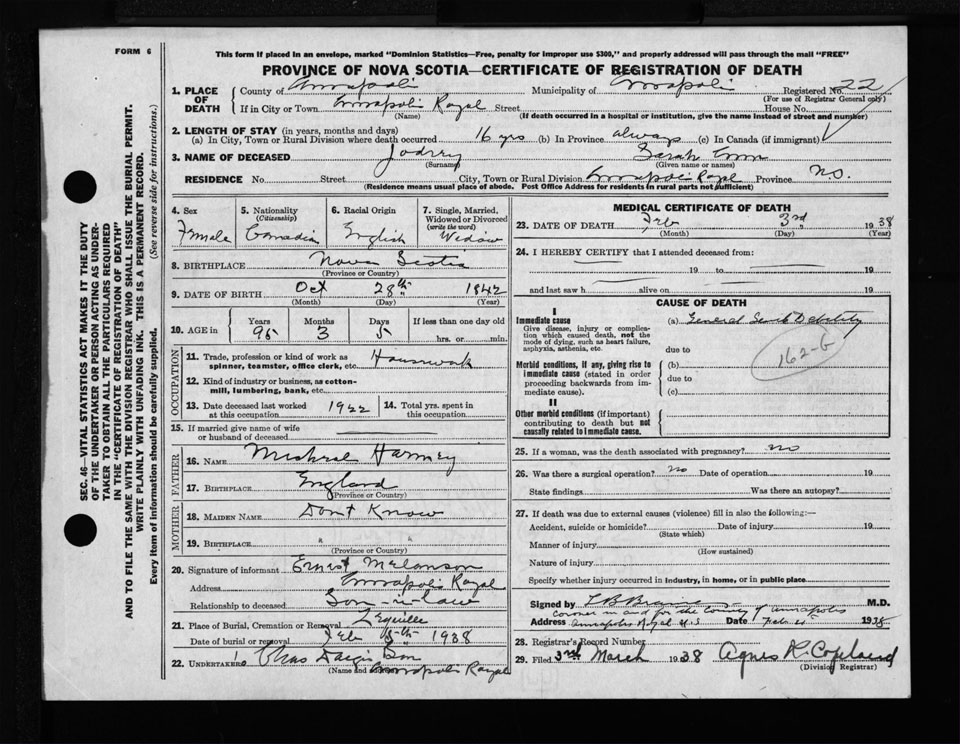 FORM 6
This form if placed in an envelope, marked "Dominion Statistics—Free, penalty for improper use $300," and properly addressed will pass through the mail "FREE"
PROVINCE OF NOVA SCOTIA—CERTIFICATE OF REGISTRATION OF DEATH
1. PLACE OF DEATH
County of Annapolis Municipality of Annapolis Registered No. 22
(For use of Registrar General only)
If in City or Town Annapolis Royal Street House No.
(Name) (If death occurred in a hospital or institution, give the name instead of street and number)
2. LENGTH OF STAY (in years, months and days)
(a) In City, Town or Rural Division where death occurred 16 yrs (b) In Province always (c) In Canada (if immigrant)
3. NAME OF DECEASED Sarah
(Surname) (Given name or names)
RESIDENCE No. Street City, Town or Rural Division Annapolis Royal Province N.S.
(Residence means usual place of abode. Post Office Address for residents in rural parts not sufficient)
4. Sex Female
5. Nationality (Citizenship) Canadia
6. Racial Origin English
7. Single, Married, Widowed or Divorced (write the word) Widow
8. BIRTHPLACE Nova Scotia
(Province or Country)
9. DATE OF BIRTH Oct 28th 1842
(Month) (Day) (Year)
10. AGE in Years 95 Months 3 Days 5 If less than one day old hrs. or min.
OCCUPATION
11. Trade, profession or kind of work as spinner, teamster, office clerk, etc. Housework
12. Kind of industry or business, as cotton-mill, lumbering, bank, etc.
13. Date deceased last worked at this occupation 1922 14. Total yrs. spent in this occupation
15. If married give name of wife or husband of deceased
FATHER
16. NAME
17. BIRTHPLACE England
(Province or Country)
MOTHER
18. MAIDEN NAME Dont Know
19. BIRTHPLACE " "
(Province or Country)
20. Signature of informant Ernest Melanson
Address Annapolis Royal
Relationship to deceased Son-in-law
21. Place of Burial, Cremation or Removal Lequille
Date of burial or removal Feb 1938
22. UNDERTAKER Chas Son
(Name and address) Annapolis Royal
MEDICAL CERTIFICATE OF DEATH
23. DATE OF DEATH Feb 3rd 1938
(Month) (Day) (Year)
24. I HEREBY CERTIFY that I attended deceased from:
19 to 19
and last saw h alive on 19
CAUSE OF DEATH
I
Immediate cause
Give disease, injury or complication which caused death, not the mode of dying, such as heart failure, asphyxia, asthenia, etc.
(a) General Debility
162-G
due to
Morbid conditions, if any, giving rise to immediate cause (stated in order proceeding backwards from immediate cause).
(b)
due to
(c)
II
Other morbid conditions (if important) contributing to death but not causally related to immediate cause.
25. If a woman, was the death associated with pregnancy? no
26. Was there a surgical operation? no Date of operation 19
State findings Was there an autopsy?
27. If death was due to external causes (violence) fill in also the following:—
Accident, suicide or homicide? Date of injury 19
(State which)
Manner of injury
(How sustained)
Nature of injury
Specify whether injury occurred in industry, in home, or in public place
Signed by M.D.
Coroner in and for the County of Annapolis
Address Annapolis Royal N.S. Date Feb 4 1938
28. Registrar's Record Number
29. Filed 3rd March 1938 Agnes R. Copeland
(Division Registrar)
SEC. 46—VITAL STATISTICS ACT MAKES IT THE DUTY
OF THE UNDERTAKER OR PERSON ACTING AS UNDER-
TAKER TO OBTAIN ALL THE PARTICULARS REQUIRED
IN THE "CERTIFICATE OF REGISTRATION OF DEATH"
AND TO FILE THE SAME WITH THE DIVISION REGISTRAR WHO SHALL ISSUE THE BURIAL PERMIT.
WRITE PLAINLY WITH UNFADING INK. THIS IS A PERMANENT RECORD.
Every item of information should be carefully supplied. (See reverse side for instructions.)